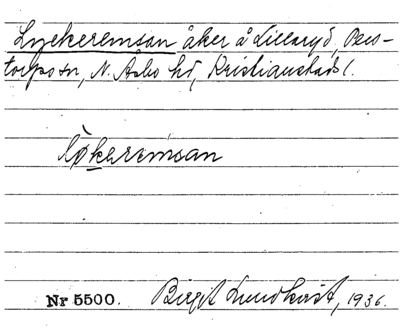 Lyckeremsan åker å Lillaryd, Pers-
torps sn, N. Åsbo hd, Kristianstads l.
lø̀keremsan
Nr 5500. Birgit Lundkvist, 1936.